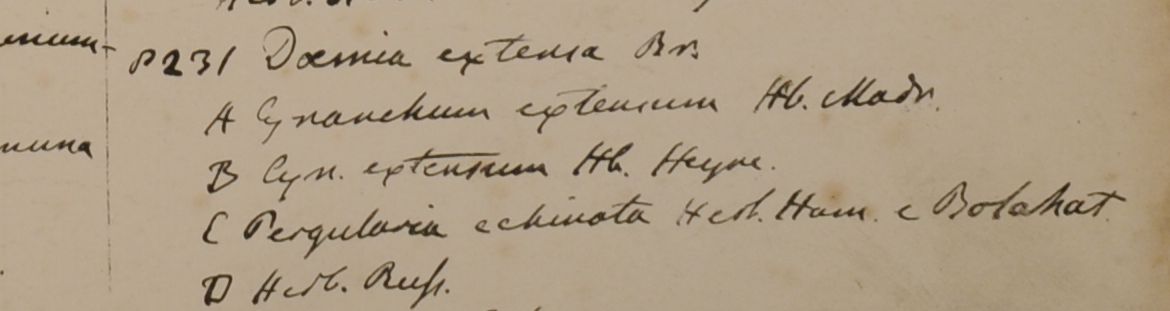 8231 Dæmia extensa Br.
A Cynanchum extensum Hb. Madr.
B Cyn. extensum Hb. Heyne.
C Pergularia echinata Herb. Ham. e Bolahat
D Herb. Russ.